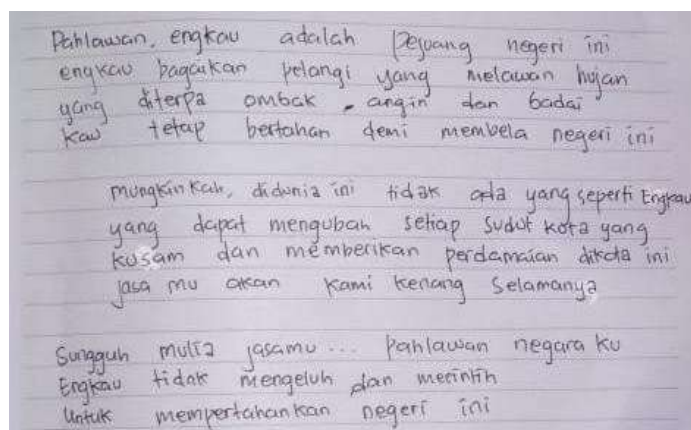 Pahlawan, engkau adalah pejuang negeri ini
engkau bagaikan pelangi yang melawan hujan
yang diterpa ombak, angin dan badai
kau tetap bertahan demi membela negeri ini
mungkin kah, didunia ini tidak ada yang seperti Engkau
yang dapat mengubah setiap sudut kota yang
kusam dan memberikan perdamaian dikota ini
jasa mu akan kami kenang selamanya
Sungguh mulia jasamu... Pahlawan negara ku
Engkau tidak mengeluh dan merintih
Untuk mempertahankan negeri ini